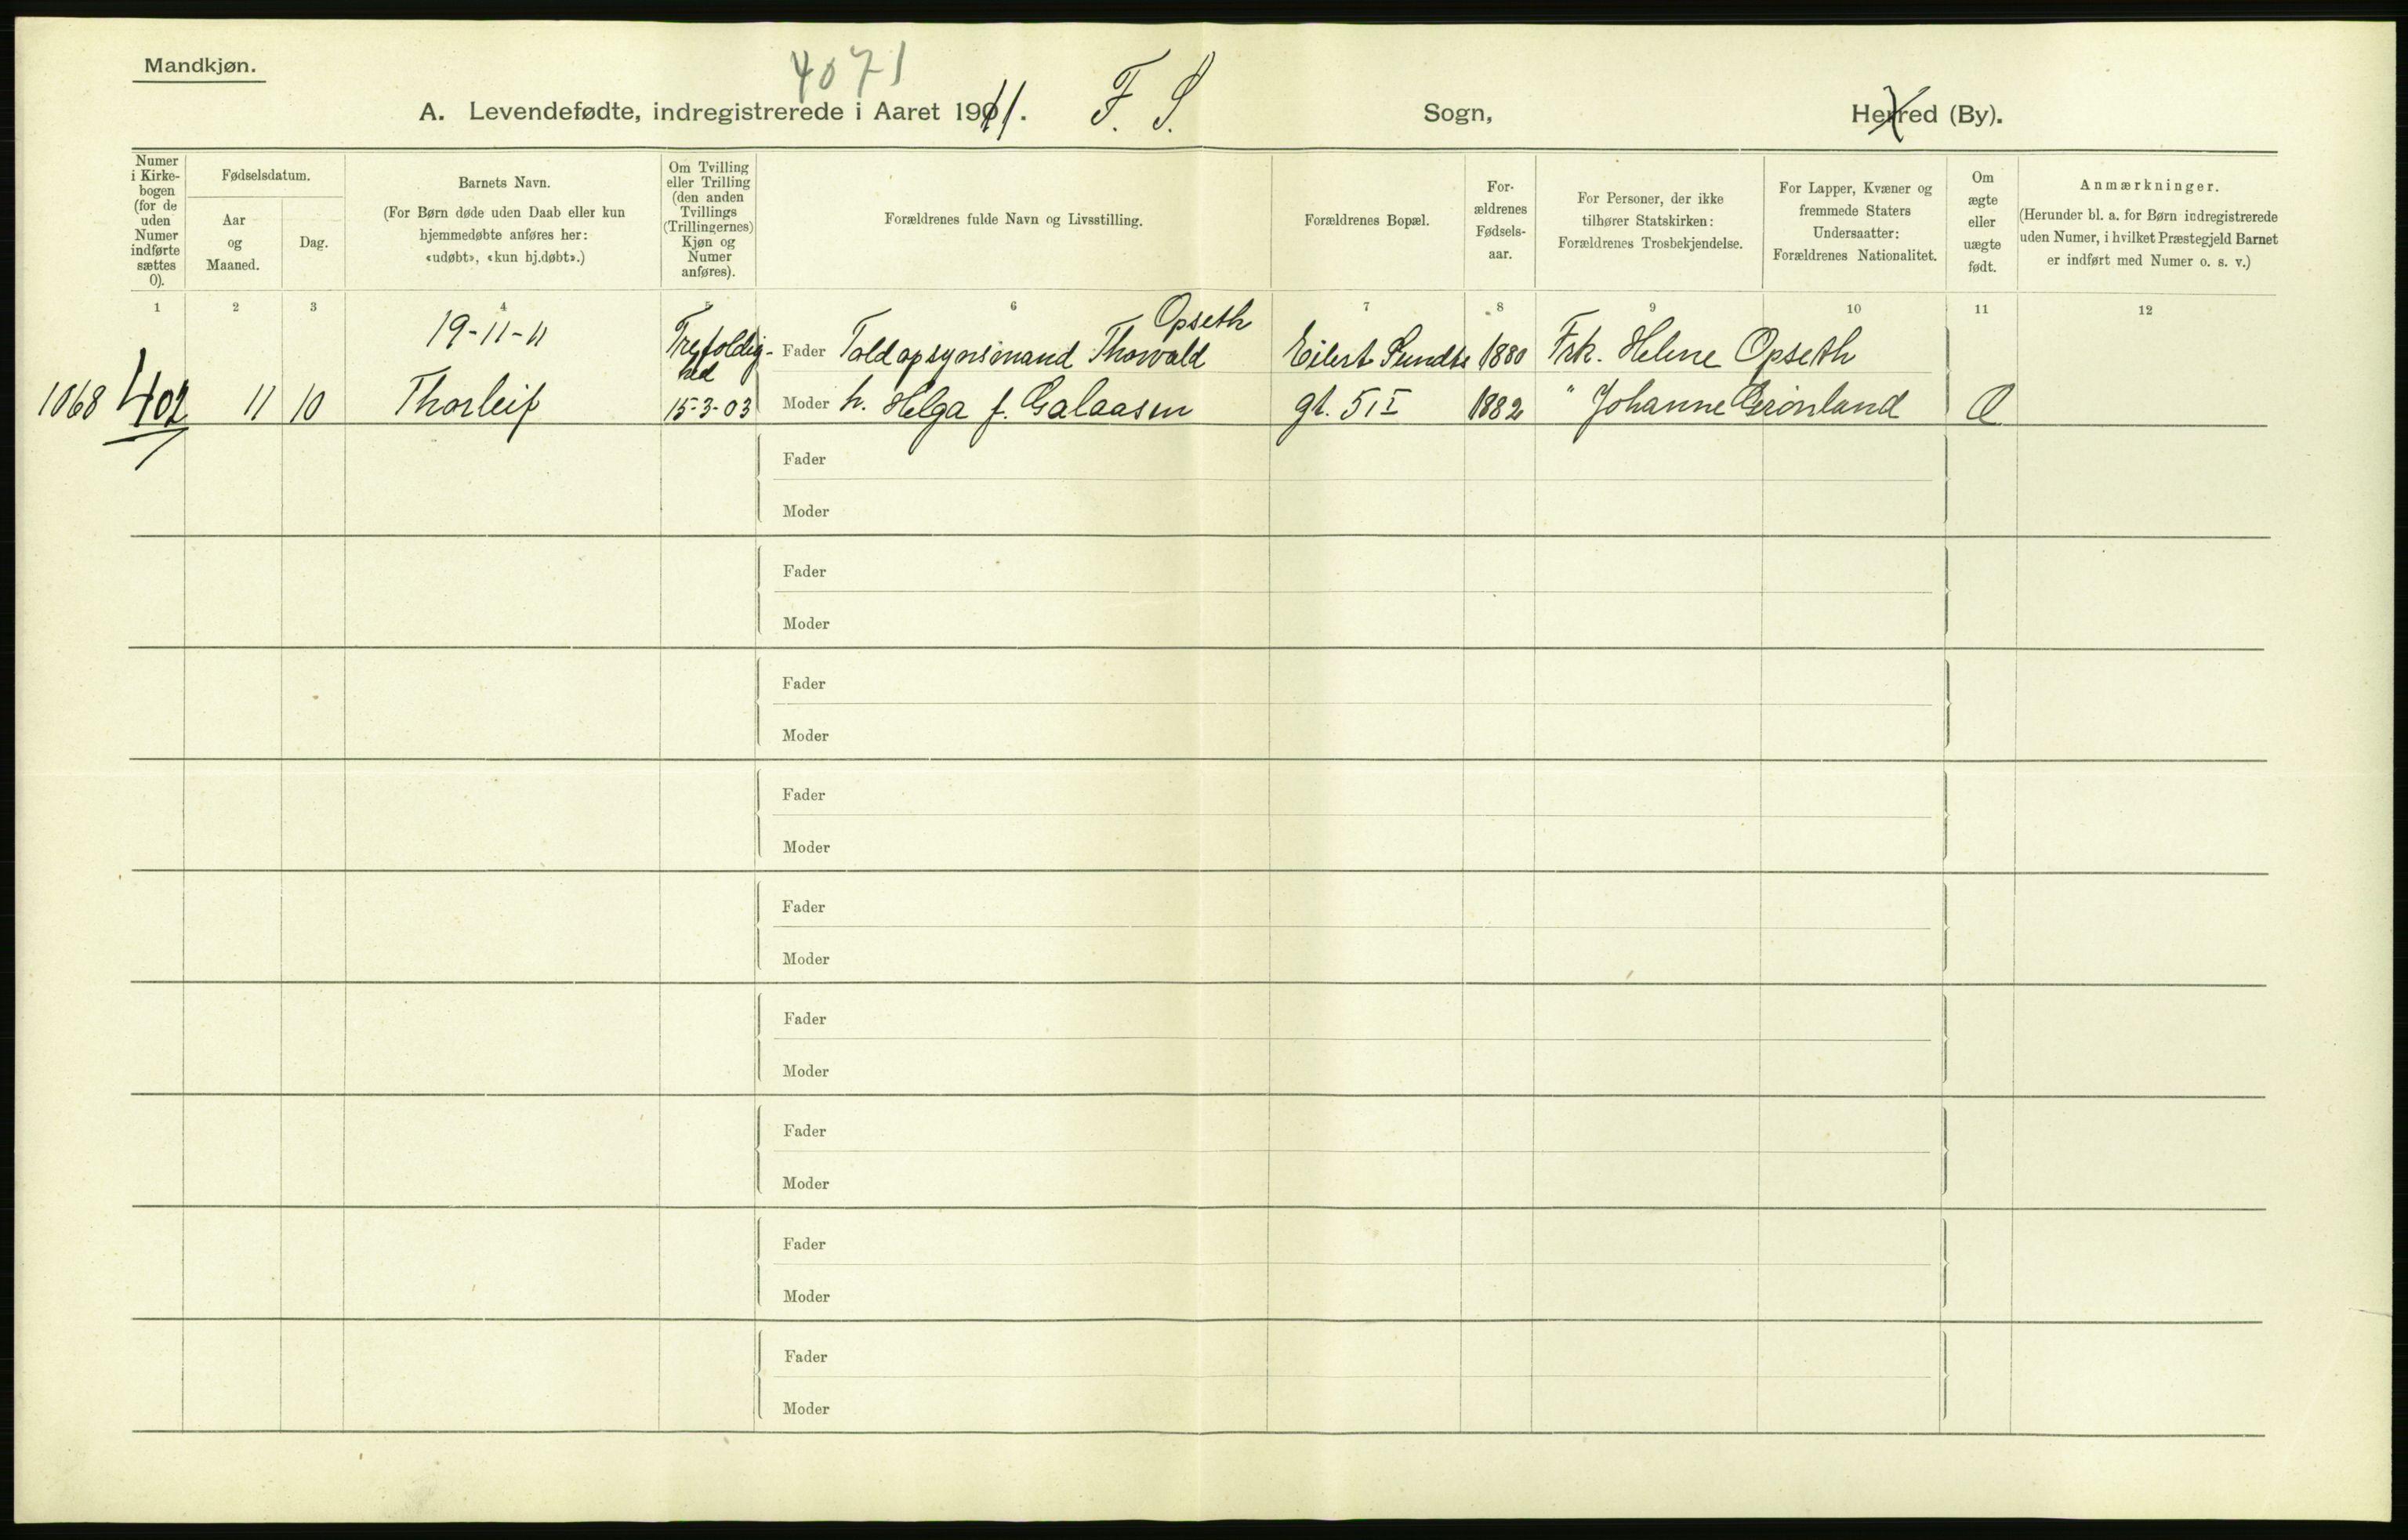 Mandkjøn.
4071
A. Levendefødte, indregistrerede i Aaret 1911. F. S. Sogn, Herred (By).
Numer i Kirkebogen (for de uden Numer indførte sættes 0).
Fødselsdatum.
Aar og Maaned.
Dag.
Barnets Navn.
(For Børn døde uden Daab eller kun
hjemmedøbte anføres her:
«udøbt», «kun hj.døbt».)
Om Tvilling
eller Trilling
(den anden
Tvillings
(Trillingernes)
Kjøn og
Numer
anføres).
Forældrenes fulde Navn og Livsstilling.
Forældrenes Bopæl.
For-
ældrenes
Fødsels-
aar.
For Personer, der ikke
tilhører Statskirken:
Forældrenes Trosbekjendelse.
For Lapper, Kvæner og
fremmede Staters
Undersaatter:
Forældrenes Nationalitet.
Om
ægte
eller
uægte
født.
Anmærkninger.
(Herunder bl. a. for Børn indregistrerede
uden Numer, i hvilket Præstegjeld Barnet
er indført med Numer o. s. v.)
1 2 3 4 5 6 7 8 9 10 11 12
19-11-11 Trefoldig- Opseth
hed Fader Toldopsynsmand Thorvald Eilert Sundts 1880 Frk. Helene Opseth
1068 402 11 10 Thorleif 15-3-03 Moder h. Helga f. Galaasen gt. 51 I 1882 " Johanne Grönland Æ
Fader
Moder
Fader
Moder
Fader
Moder
Fader
Moder
Fader
Moder
Fader
Moder
Fader
Moder
Fader
Moder
Fader
Moder